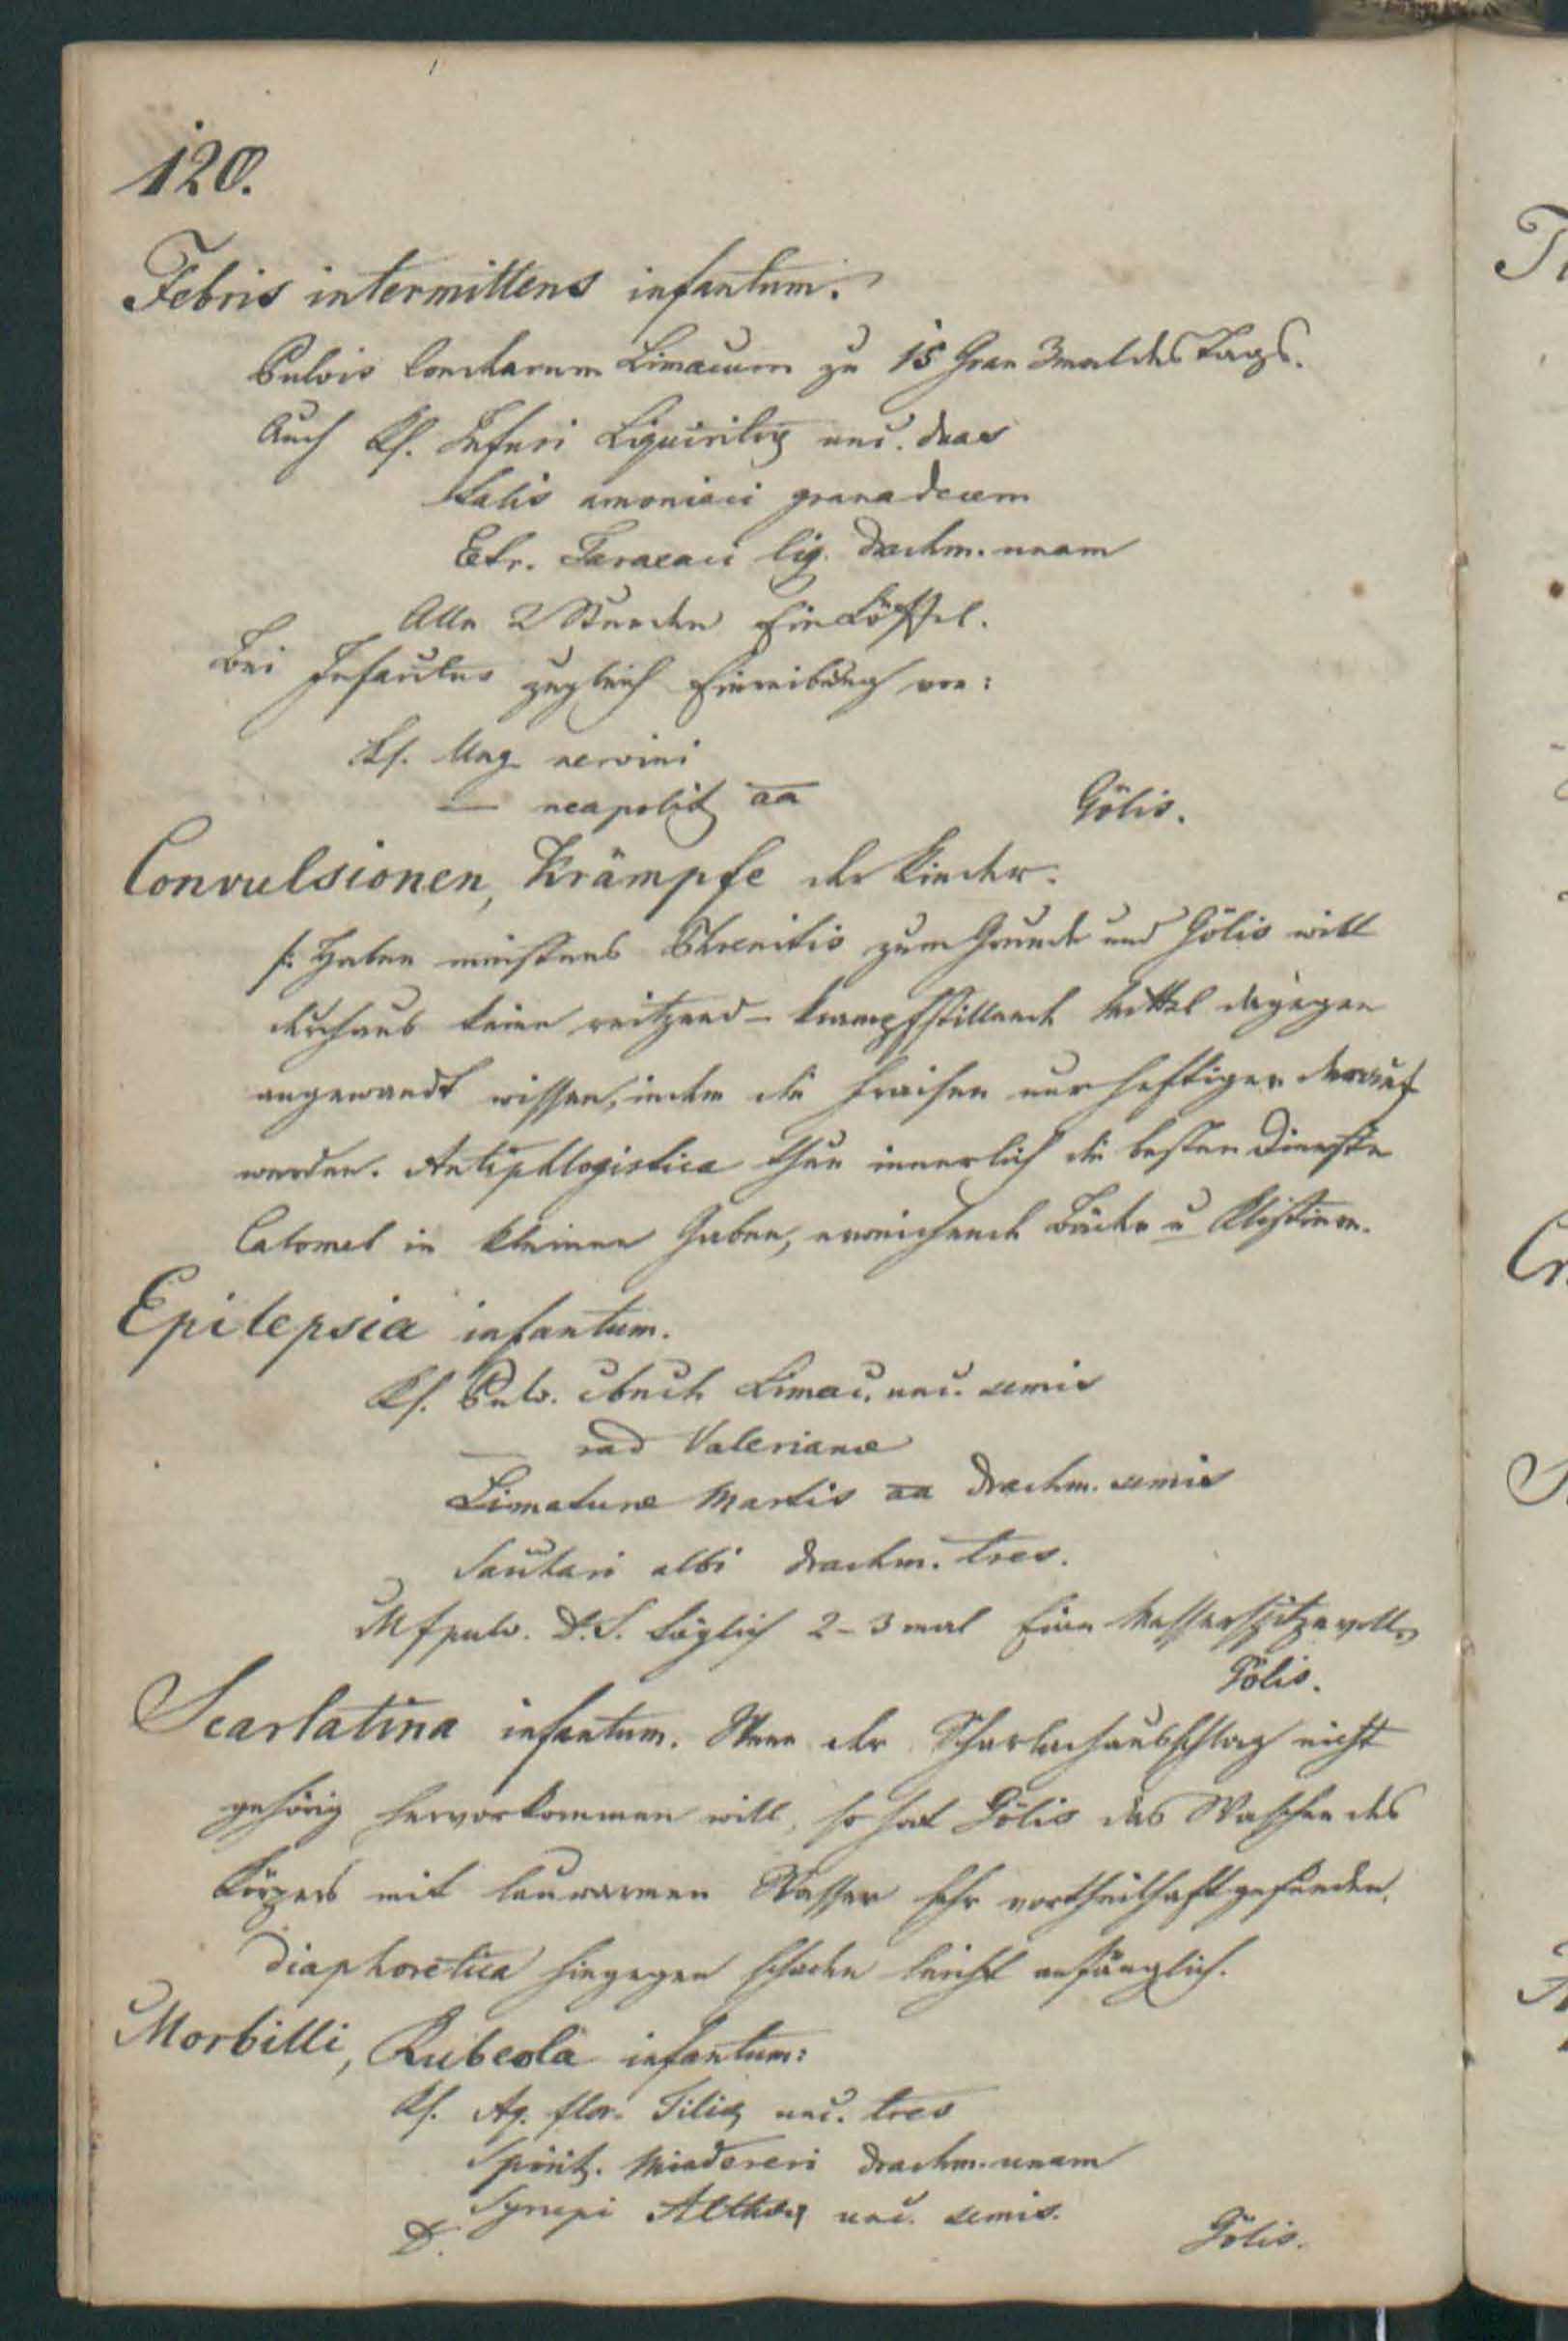 120.
Febris intermittens infantum.
Pulvis Concharum Limacum zu 15 Gran 3mal des Tags.
Auch Rf. Infusi Liquiritiæ unc. duas
Salis amoniaci grana decem
Extr. Taraxaci liq. drachm. unam
Alle 2 Stunden Ein Löffel.
Bei zugleich Einreibung von:
Rf. Ung. nervini
— neapolit aa
Gölis.
Convulsionen, Krämpfe der Kinder.
/: Haben meistens Phrenitis zum Grunde und Gölis will
durchaus keine reitzend-krampfstillende Mittel dagegen
angewandt wissen, indem die Fraisen nur heftiger darauf
werden. Antiphlogistica thun innerlich die besten Dienste
Calomel in kleinen Gaben, erweichende Bäder u Klistiere.
Epilepsia infantum.
Rf. Pulv. Limac. unc. semis
— rad Valerianæ
Limaturæ Martis aa drachm. semis
Sacchari albi drachm. tres.
M f pulv. D. S. Täglich 2-3 mal Eine Messerspitze voll.
Gölis.
Scarlatina infantum. Wenn der Scharlachausschlag nicht
gehörig hervorkommen will, so hat Gölis das Waschen des
Körpers mit lauwarmen Wasser sehr vortheilhaft gefunden.
Diaphoretica hingegen schaden leicht anfänglich.
Morbilli, Rubeola infantum:
Rf. Aq. flor. Tiliæ unc. tres
Spirit. Mindereri drachm. unam
Syrupi Altheæ unc. semis.
D.
Gölis.